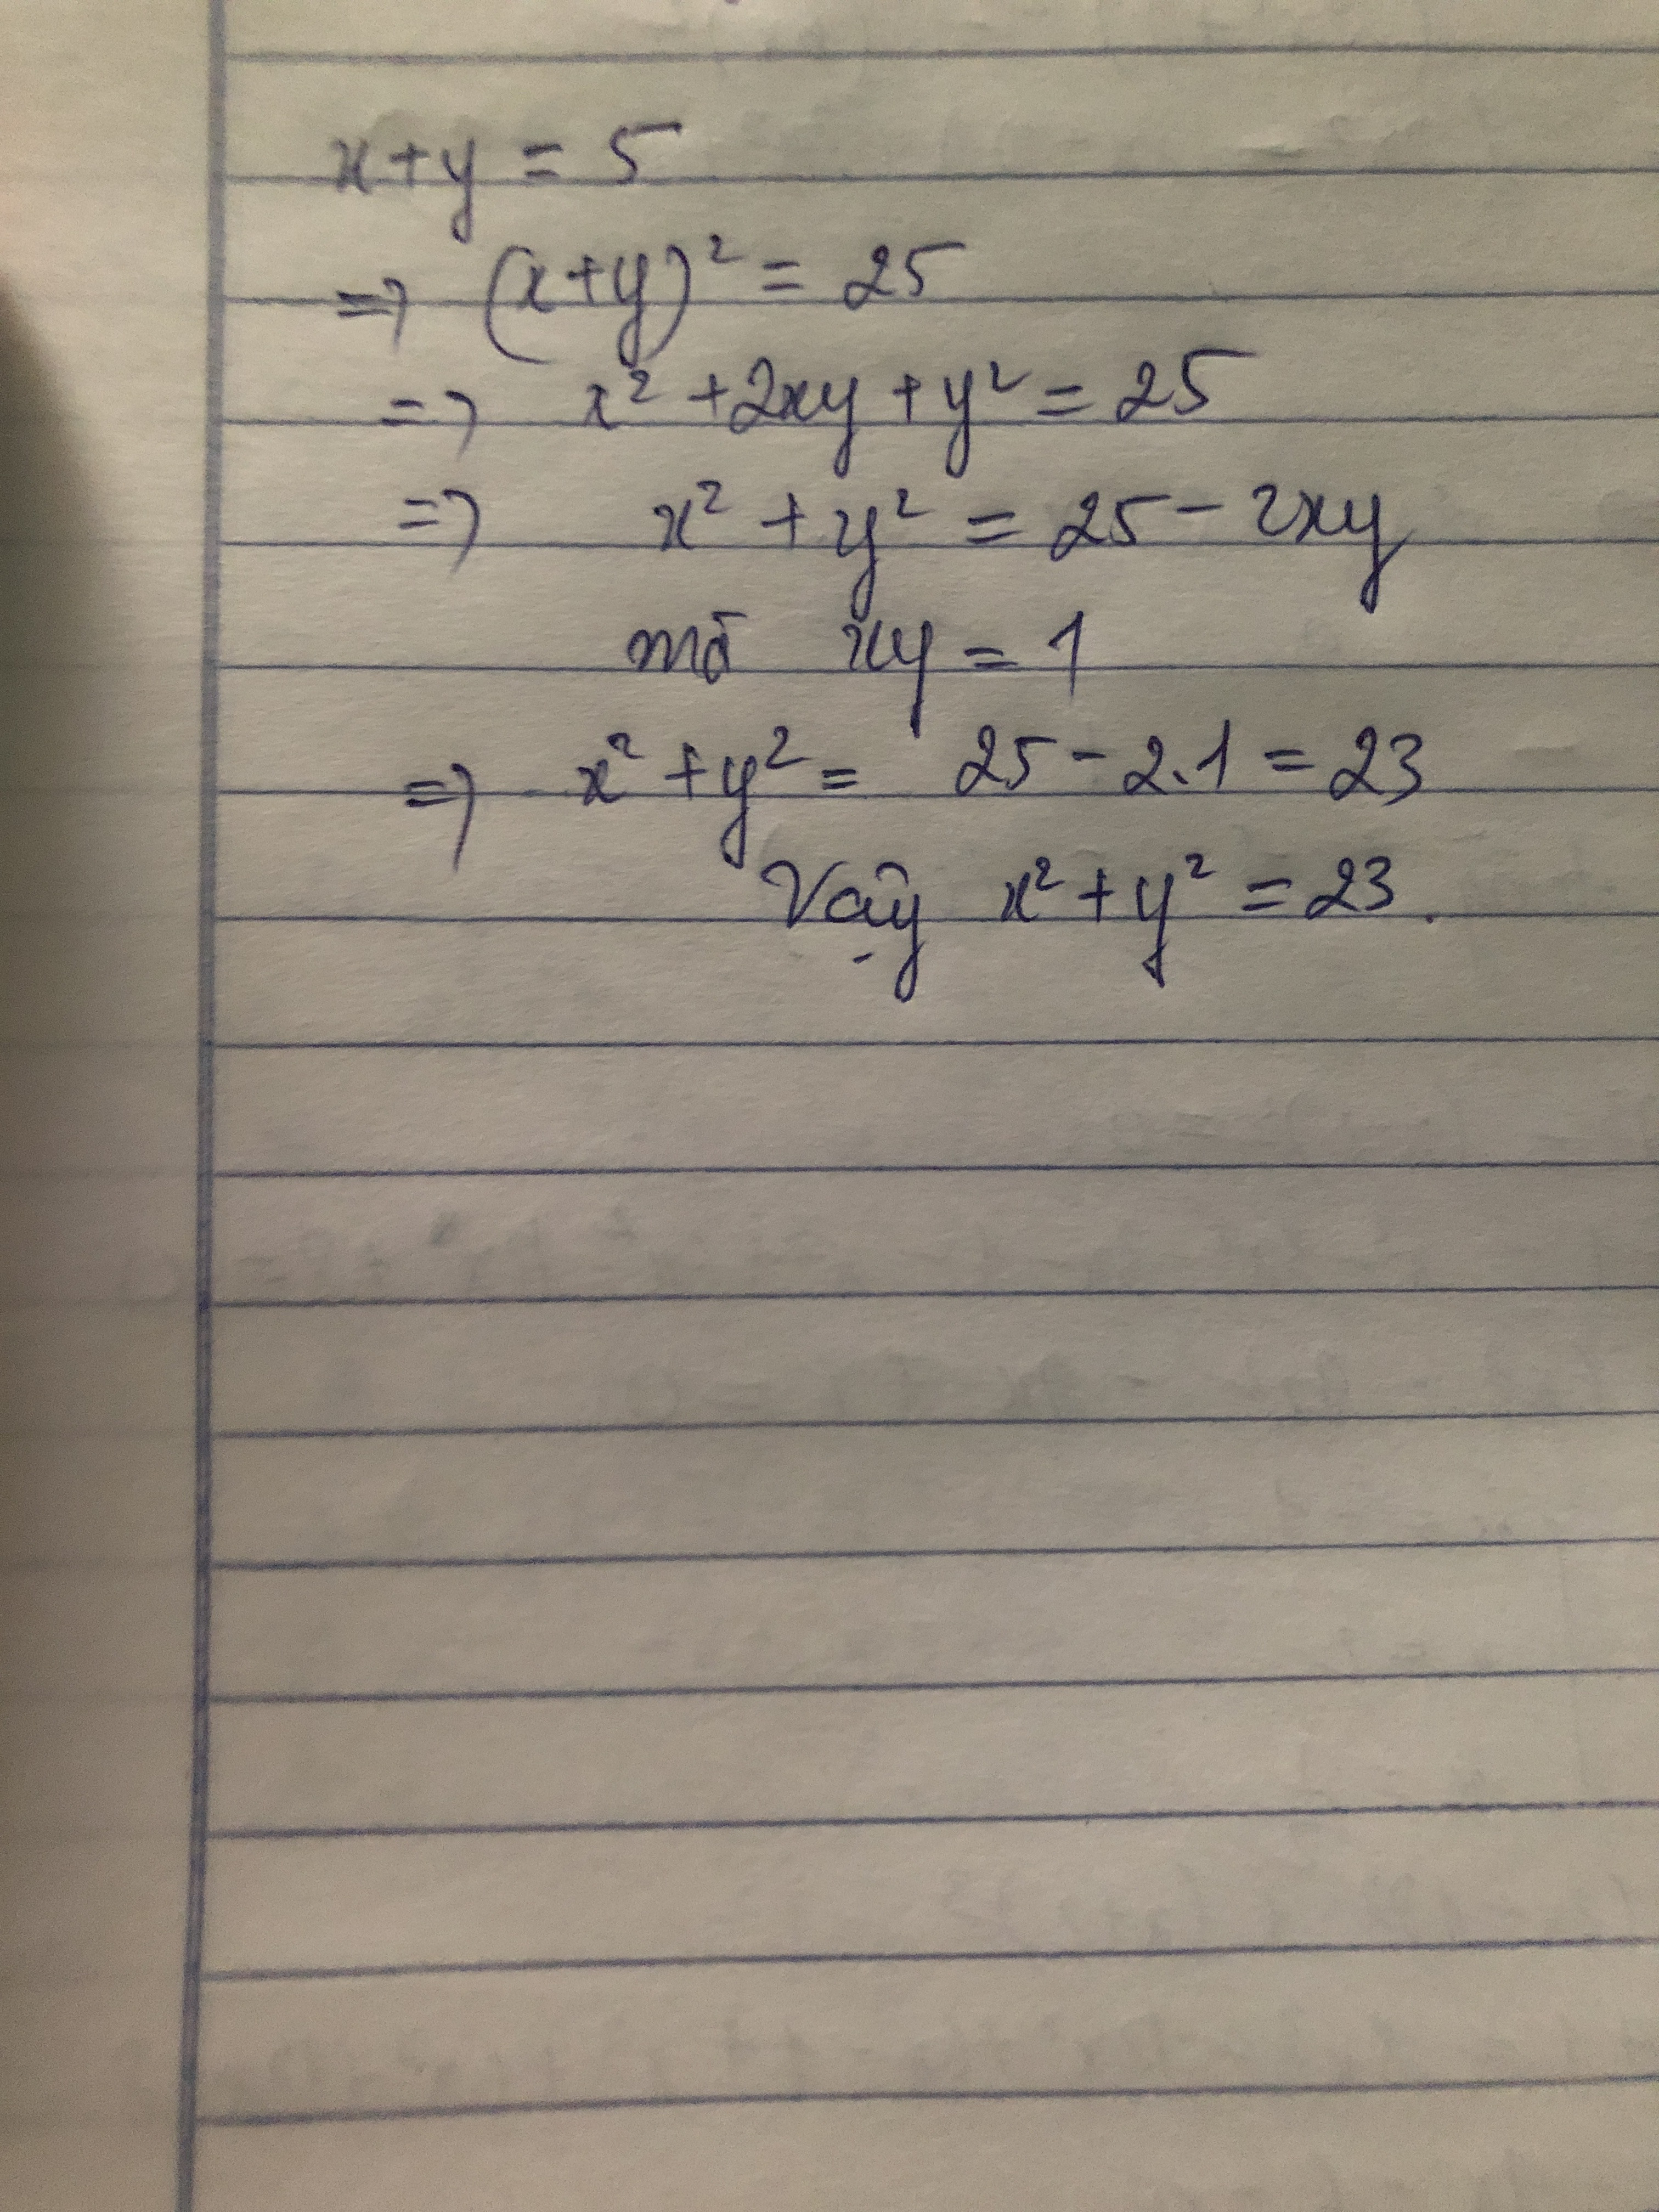 x+y = 5
=> (x+y)² = 25
=> x² +2xy +y² = 25
=> x² + y² = 25 - 2xy
mà xy = 1
=> x² + y² = 25 - 2.1 = 23
Vậy x² + y² = 23.